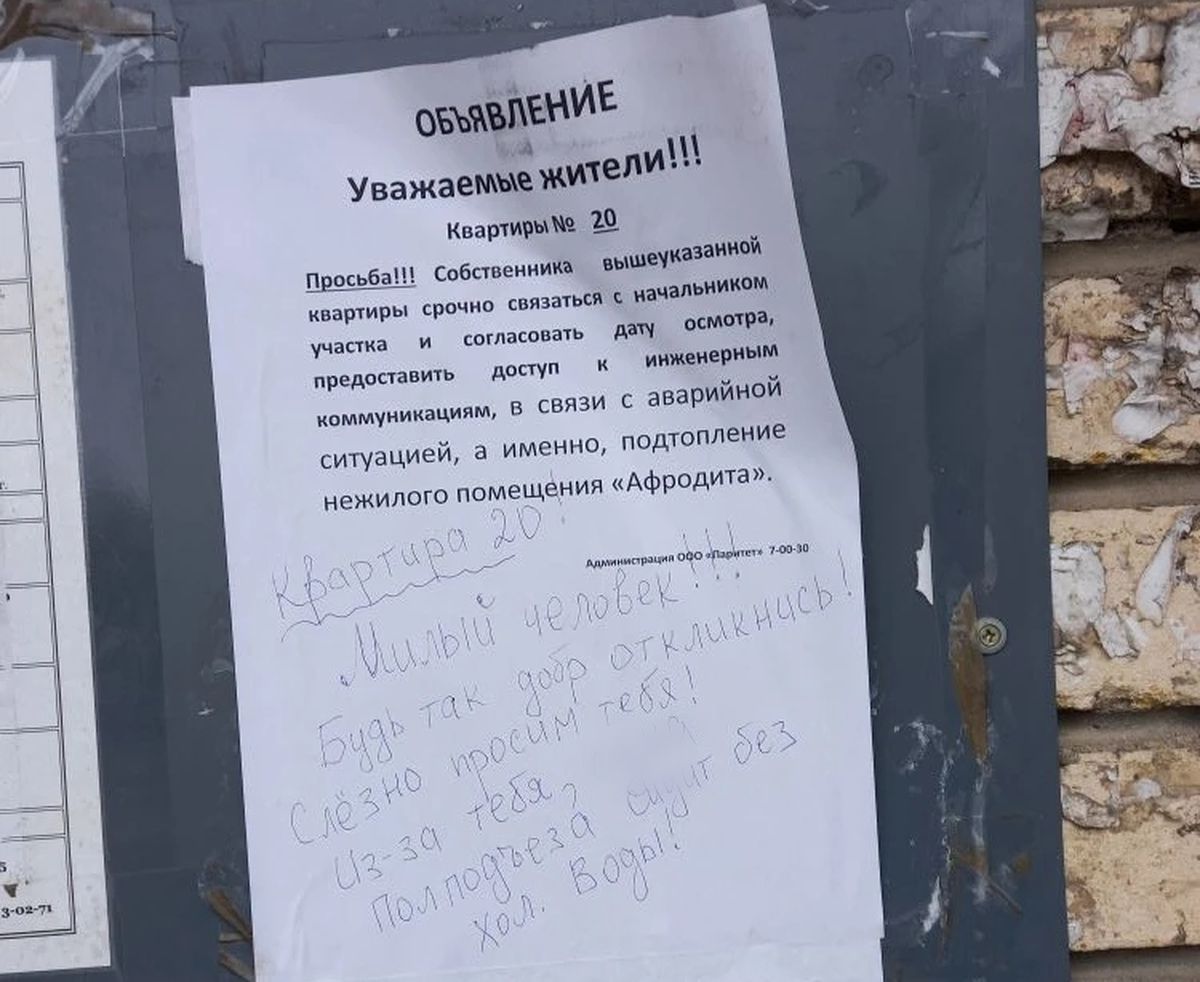 ОБЪЯВЛЕНИЕ
Уважаемые жители!!!
Квартиры № 20
Просьба!!! Собственника вышеуказанной
квартиры срочно связаться с начальником
участка и согласовать дату осмотра,
предоставить доступ к инженерным
коммуникациям, в связи с аварийной
ситуацией, а именно, подтопление
нежилого помещения «Афродита».
Администрация ООО «Паритет» 7-00-30
Квартира 20!
Милый человек!!!
Будь так добр откликнись!
Слёзно просим тебя!
Из-за тебя,
Полподъезда сидит без
хол. воды!
3-02-71